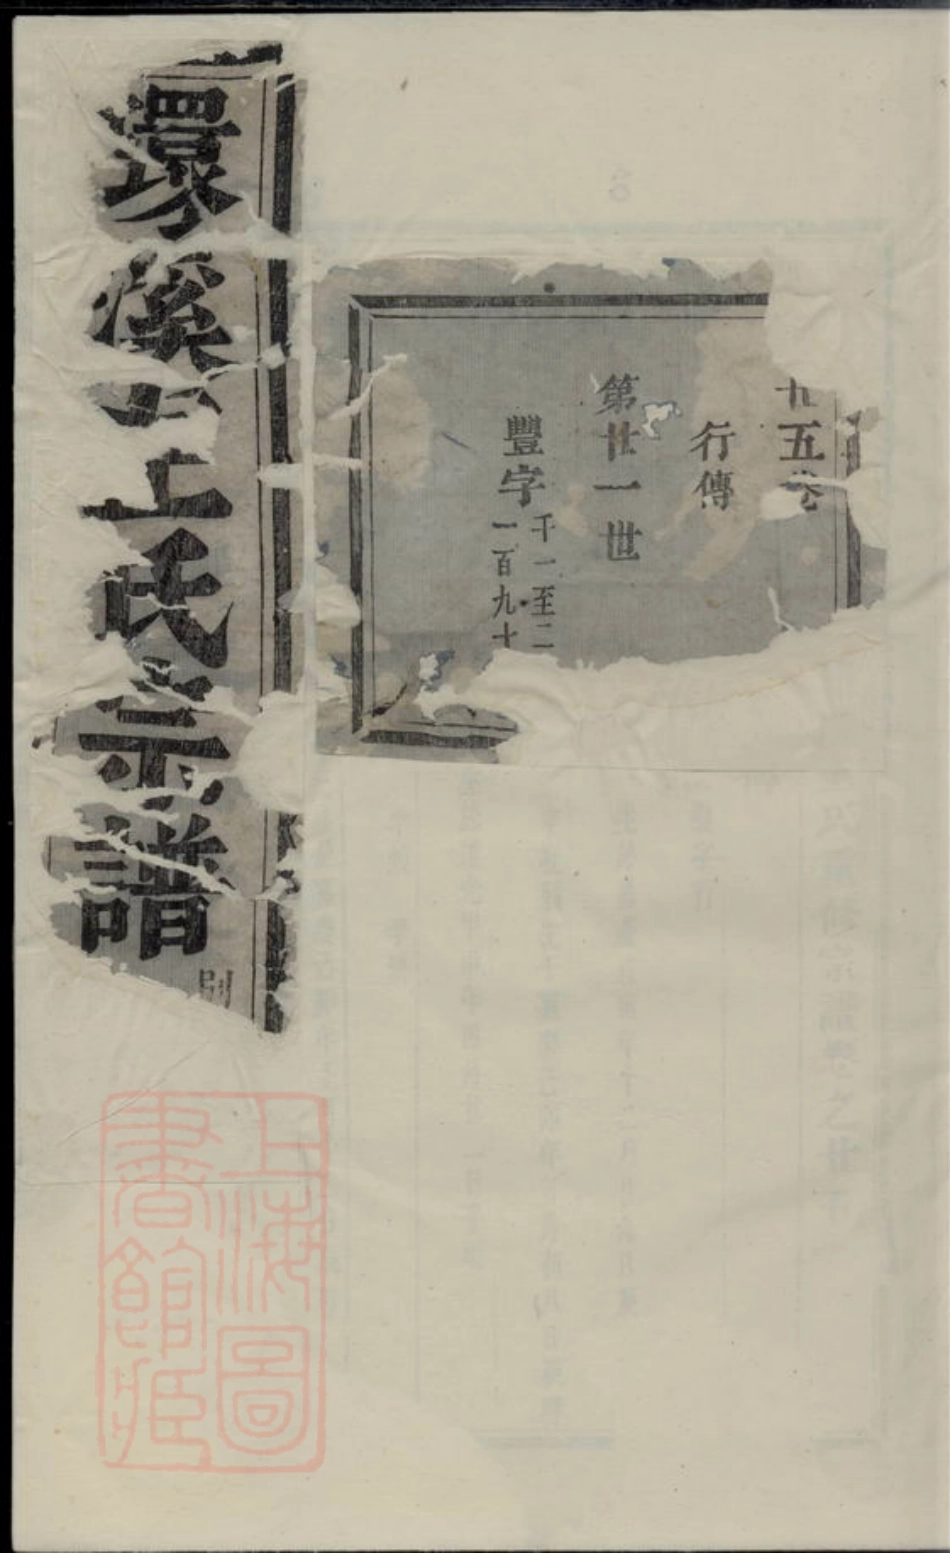 九五卷
行傳
第廿一世
豐字
千一至二
一百九十
環溪王氏宗譜
別
上海圖
書館藏